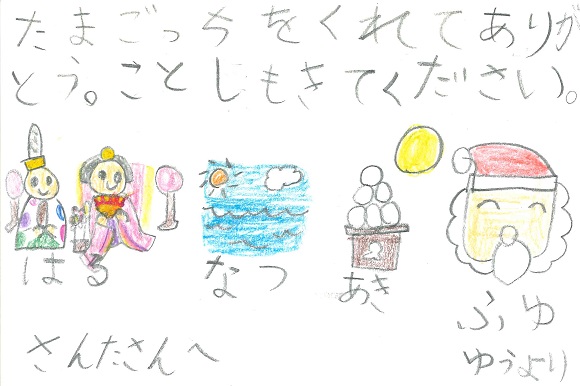 たまごっちをくれてありが
とう。ことしもきてください。
はる
なつ
あき
ふゆ
さんたさんへ
ゆうより